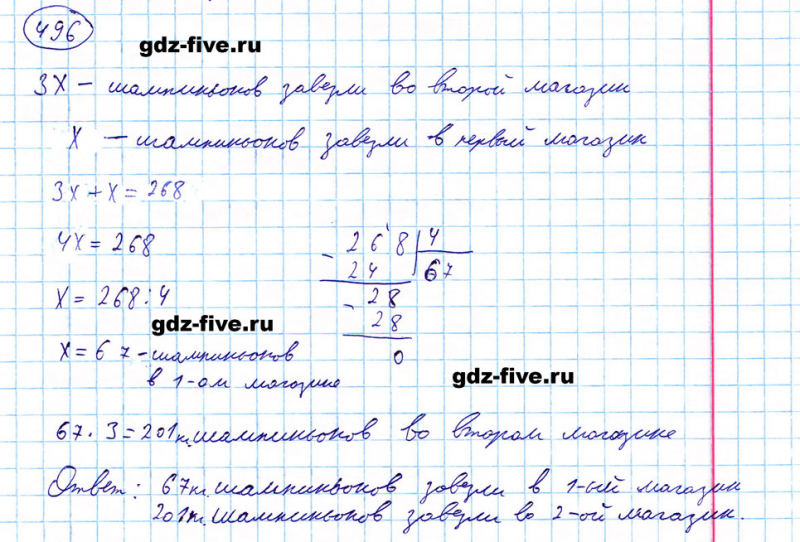 496
gdz-five.ru
3x – шампиньонов завезли во второй магазин
x – шампиньонов завезли в первый магазин
3x + x = 268
4x = 268
x = 268 : 4
gdz-five.ru
x = 67 - шампиньонов
в 1-ом магазине
- 268 | 4
24 67
- 28
28
0
gdz-five.ru
67 · 3 = 201 кг. шампиньонов во втором магазине
Ответ: 67 кг. шампиньонов завезли в 1-ый магазин
201 кг. шампиньонов завезли во 2-ой магазин.